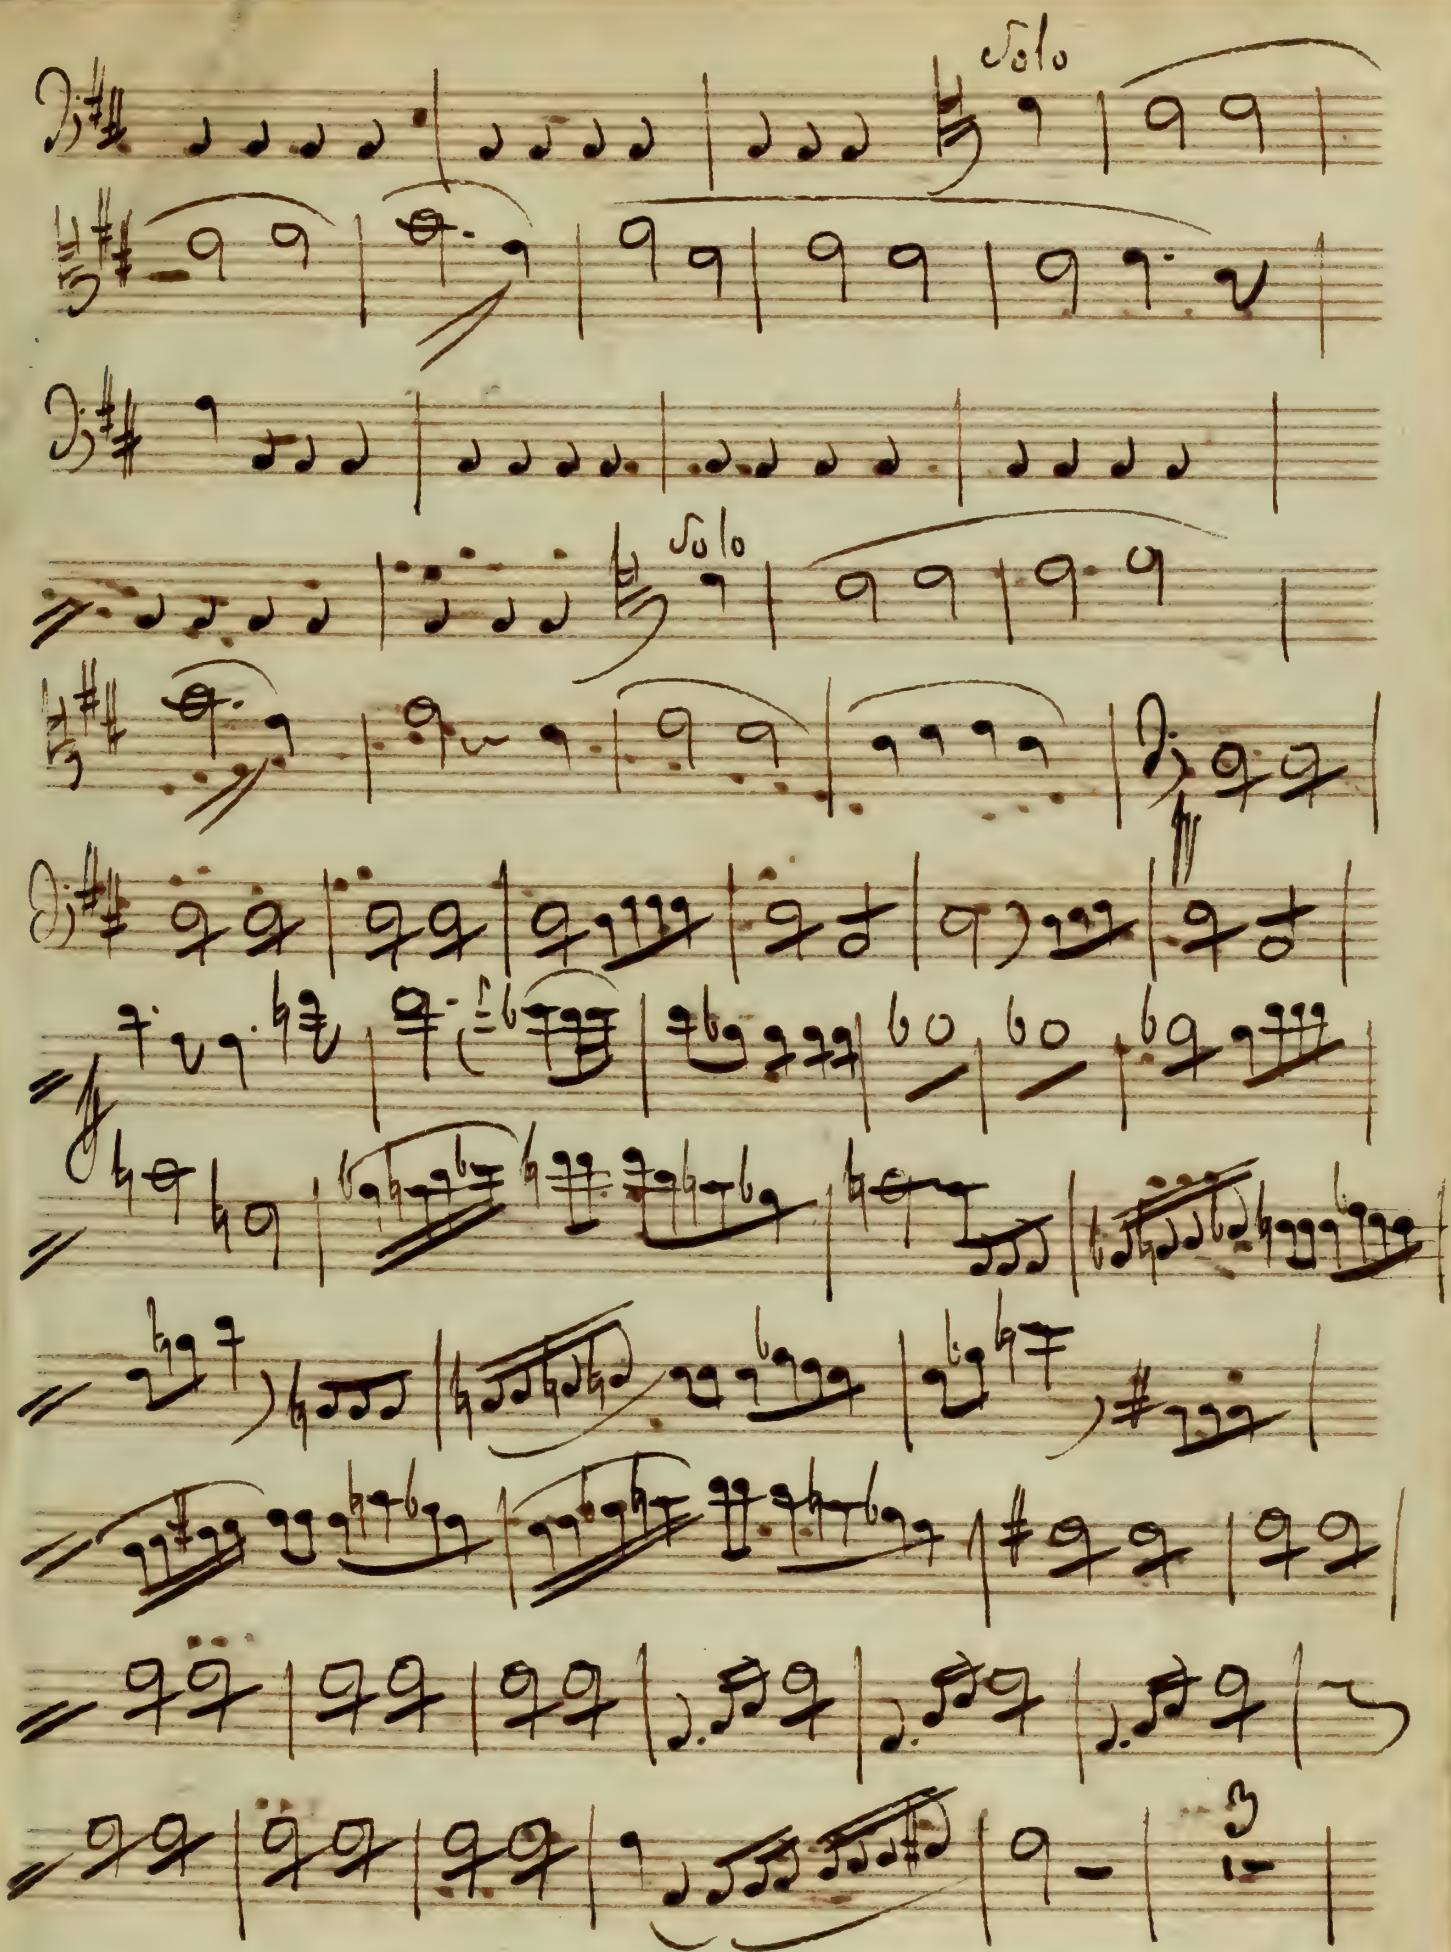 Solo
Solo
3